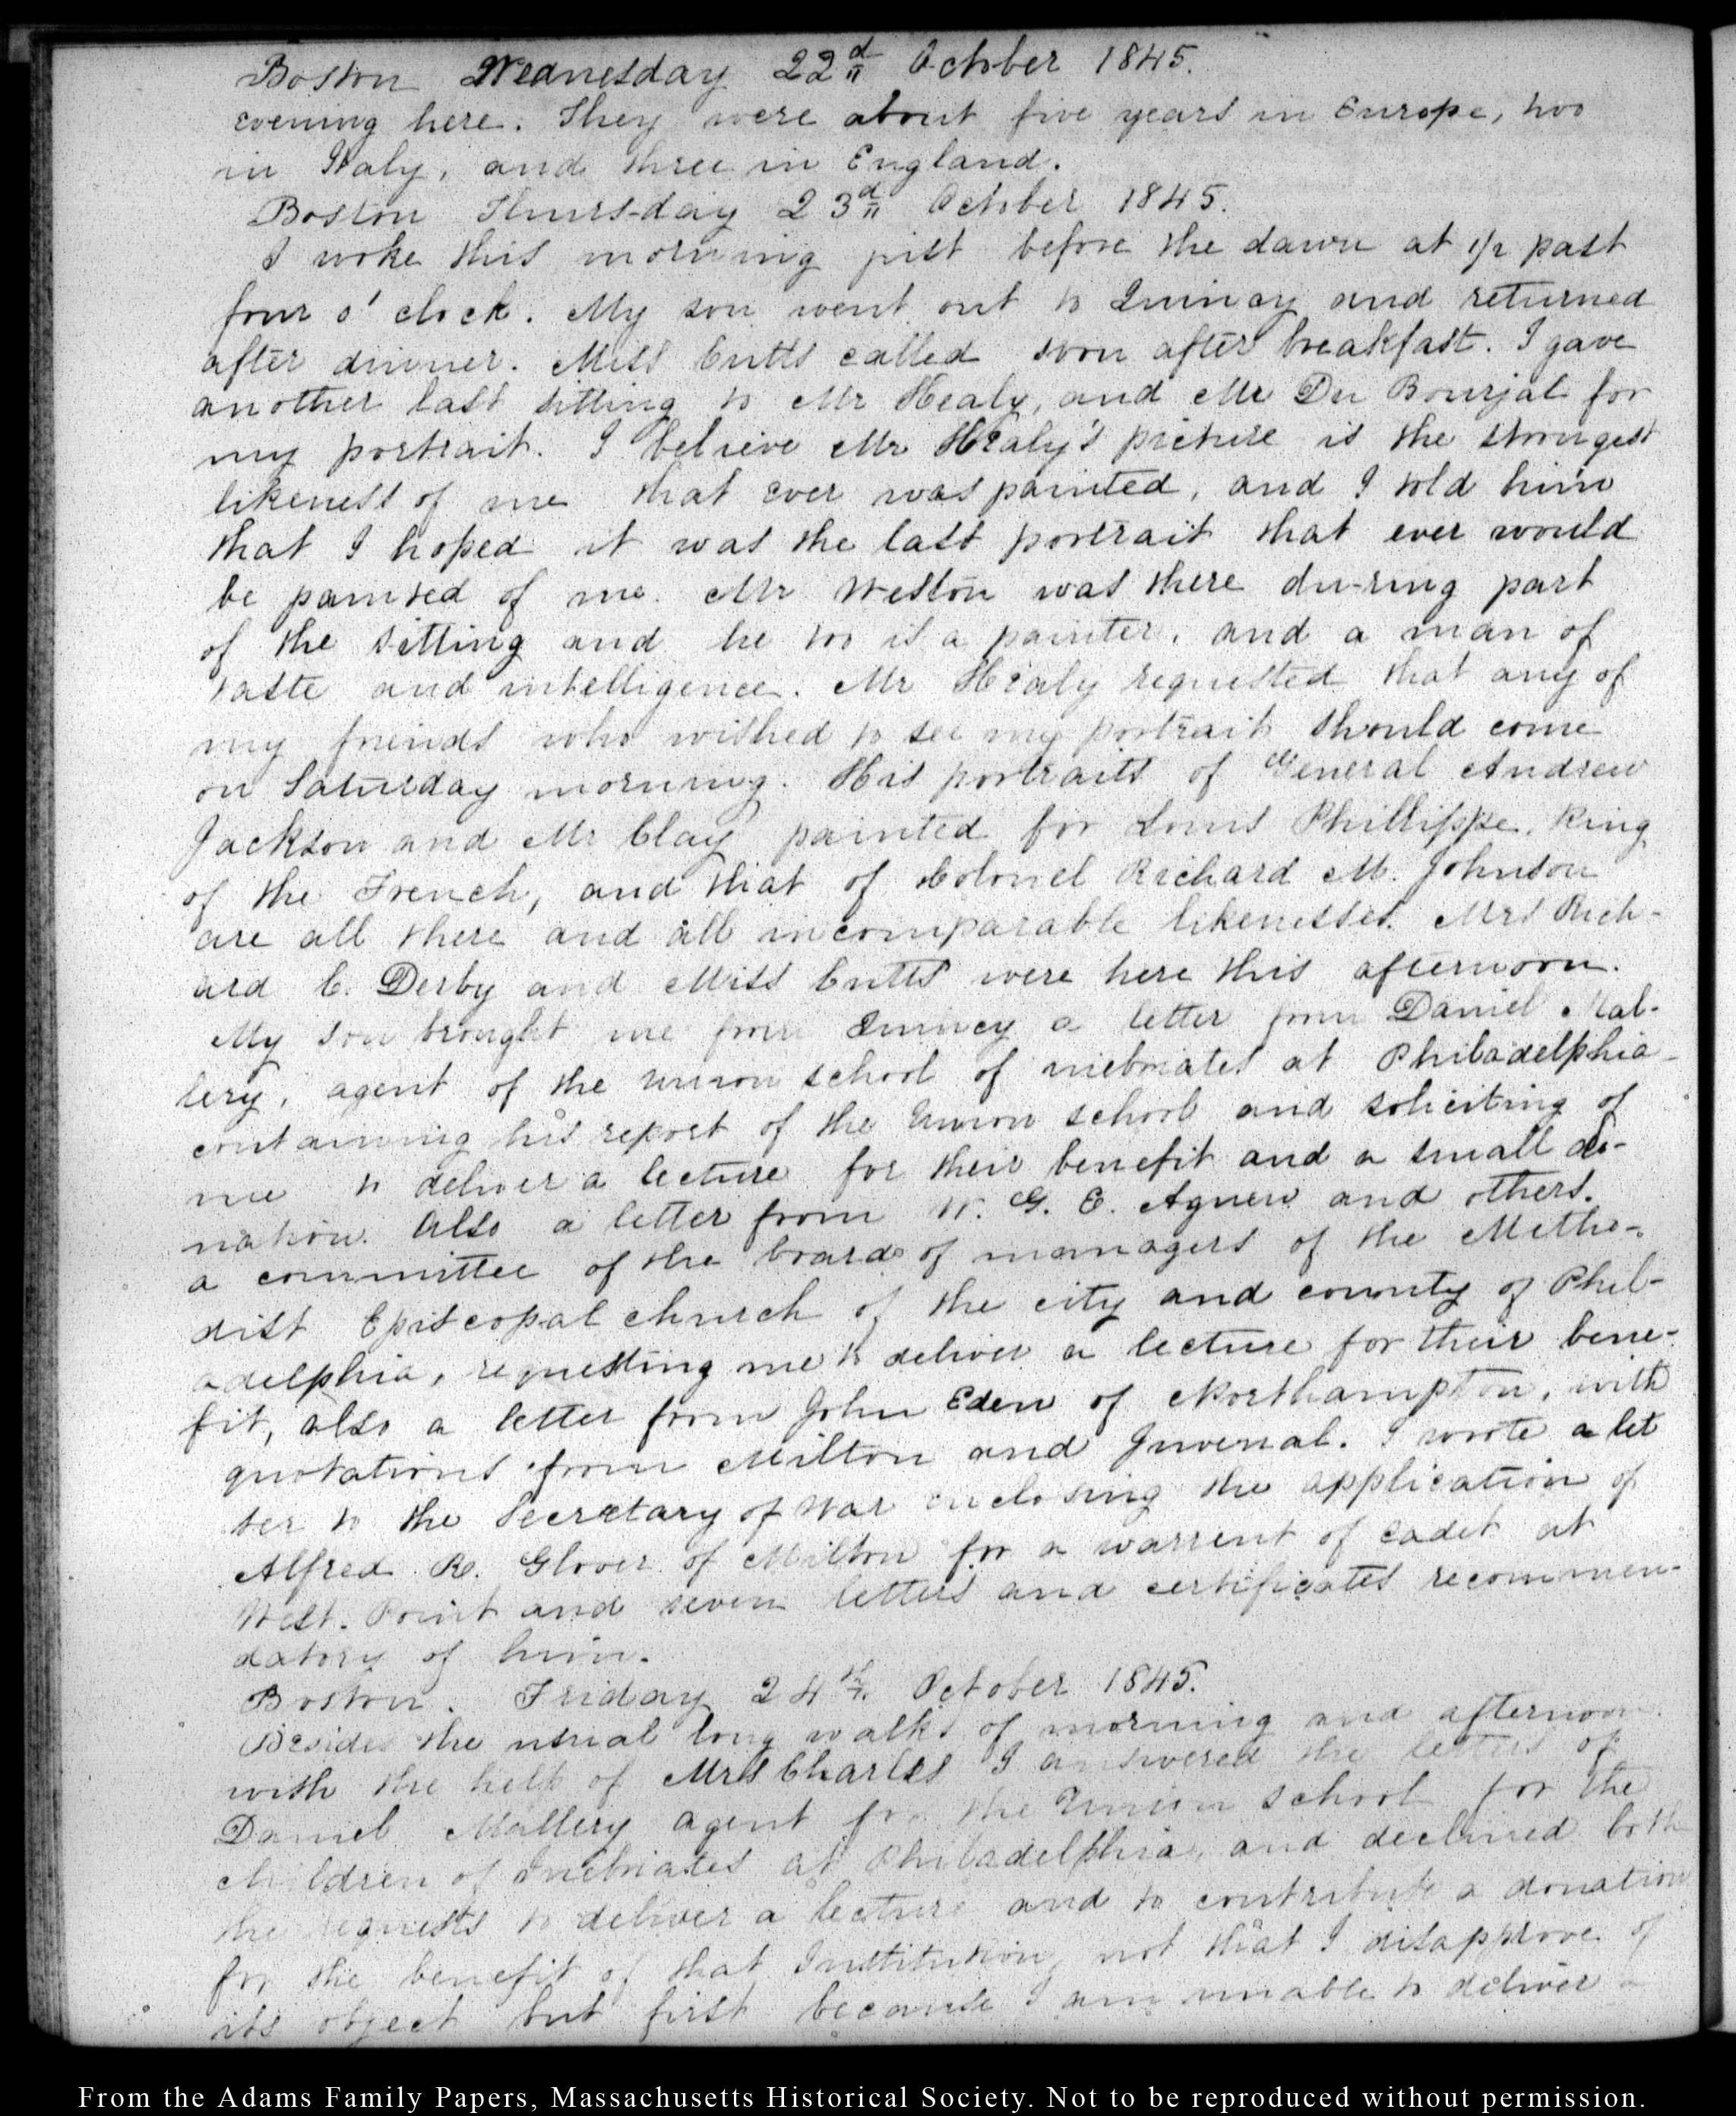 Boston Wednesday 22d October 1845.
evening here. They were about five years in Europe, two
in Italy, and three in England.
Boston Thursday 23d October 1845.
I woke this morning just before the dawn at 1/2 past
four o'clock. My son went out to Quincy and returned
after dinner. Miss Cutts called soon after breakfast. I gave
another last sitting to Mr Healy, and Mr Du Bourjal for
my portrait. I believe Mr Healy's picture is the strongest
likeness of me that ever was painted, and I told him
that I hoped it was the last portrait that ever would
be painted of me. Mr Weston was there du-ring part
of the sitting and he too is a painter, and a man of
taste and intelligence. Mr Healy requested that any of
my friends who wished to see my portrait should come
on Saturday morning. His portraits of General Andrew
Jackson and Mr Clay painted for Louis Phillippe, King
of the French, and that of Colonel Richard M. Johnson
are all there and all incomparable likenesses. Mrs Rich-
ard C. Derby and Miss Cutts were here this afternoon.
My son brought me from Quincy a letter from Daniel Mal-
lery, agent of the union school of inebriates at Philadelphia
containing his report of the Union school and soliciting of
me to deliver a lecture for their benefit and a small do-
nation. Also a letter from W. G. E. Agnew and others.
a committee of the board of managers of the Metho-
dist Episcopal church of the city and county of Phil-
adelphia, requesting me to deliver a lecture for their bene-
fit, also a letter from John Eden of Northampton, with
quotations from Milton and Juvenal. I wrote a let
ter to the Secretary of War enclosing the application of
Alfred R. Glover of Milton for a warrent of cadet at
West. Point and seven letters and certificates recommen-
datory of him.
Boston. Friday 24th. October 1845.
Besides the usual long walks of morning and afternoon.
with the help of Mrs Charles I answered the letters of
Daniel Mallery agent for the Union school for the
children of Inebriates at Philadelphia, and declined both
the requests to deliver a lecture and to contribute a donation
for the benefit of that Institution, not that I disapprove of
its object but first because I am unable to deliver a
From the Adams Family Papers, Massachusetts Historical Society. Not to be reproduced without permission.